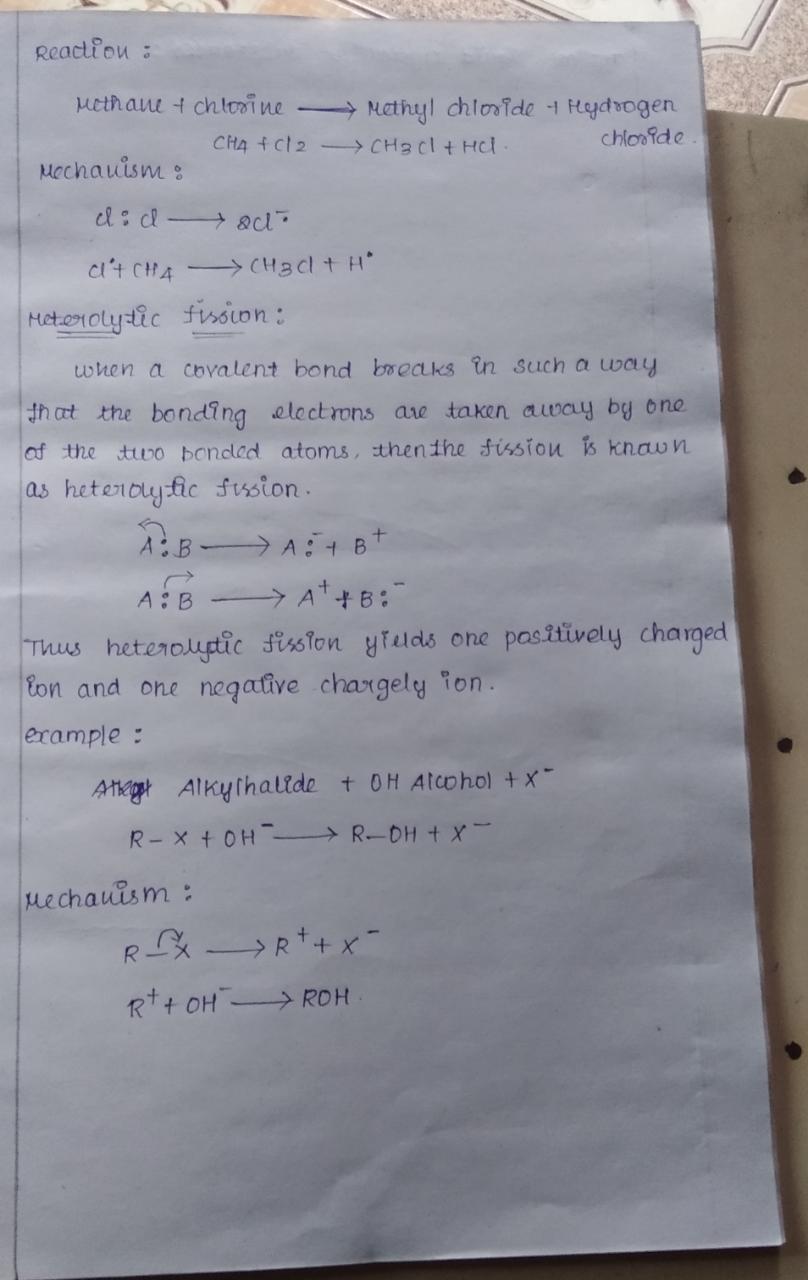 Reaction :
Methane + chlorine ⟶ Methyl chloride + Hydrogen
chloride.
CH4 + Cl2 ⟶ CH3Cl + HCl.
Mechanism :
Cl : Cl ⟶ 2Cl⁻•
Cl• + CH4 ⟶ CH3Cl + H•
Heterolytic fission :
when a covalent bond breaks in such a way
that the bonding electrons are taken away by one
of the two bonded atoms, then the fission is known
as heterolytic fission.
A : B ⟶ A :⁻ + B⁺
A : B ⟶ A⁺ + B :⁻
Thus heterolytic fission yields one positively charged
ion and one negative chargely ion.
example :
Alkylhalide + OH Alcohol + X⁻
R – X + OH⁻ ⟶ R–OH + X⁻
Mechanism :
R – X ⟶ R⁺ + X⁻
R⁺ + OH⁻ ⟶ ROH.